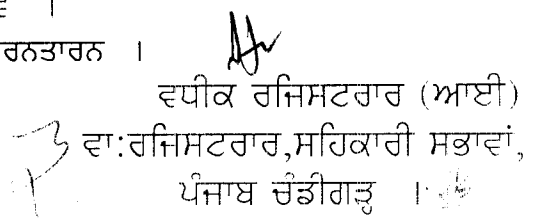 ਰਨਤਾਰਨ ।
ਵਧੀਕ ਰਜਿਸਟਰਾਰ (ਆਈ)
ਵਾ:ਰਜਿਸਟਰਾਰ,ਸਹਿਕਾਰੀ ਸਭਾਵਾਂ,
ਪੰਜਾਬ ਚੰਡੀਗੜ੍ਹ ।